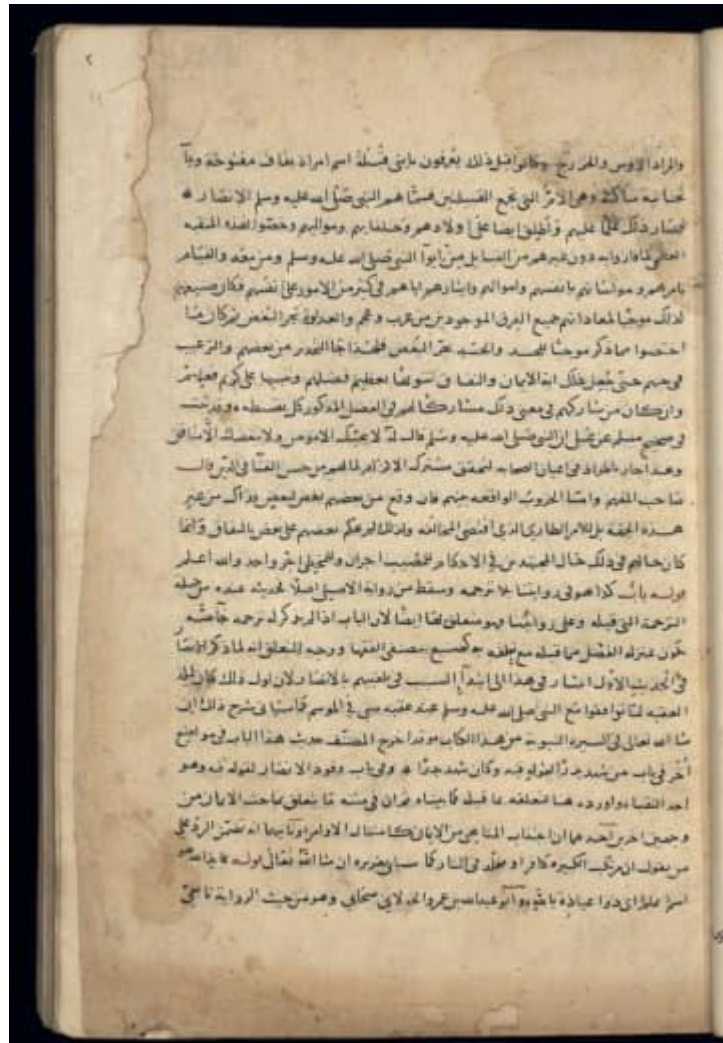 ٢
والمراد الاوس والخزرج وكانوا قبل ذلك يعرفون بابنى قيلة اسم امراة بقاف مفتوحة ويآ
تحتانيه ساكنة وهى الام التى تجمع القبيلتين فسماهم النبى صلى الله عليه وسلم الانصار
فصار ذلك علما عليهم وأطلق ايضا على اولادهم وحلفايهم ومواليهم وخصوا بهذه المنقبه
العظمى لما فازوا به دون غيرهم من القبايل من ايوآ النبى صلى الله عليه وسلم ومن معه والقيام
بامرهم ومواساتهم بانفسهم واموالهم وايثارهم اياهم فى كثير من الامور على نفسهم فكان صنيعهم
لذلك موجبا لمعاداتهم جميع الفرق الموجودين من عرب وعجم والعداوة تجر البغض ثم كان ما
اختصوا مما ذكر موجبا للحسد والحسد يجر البغض فلهذا جا التحذير من بغضهم والترغيب
فى حبهم حتى جعل ذلك اية الايمان والنفاق تنويها بعظيم فضلهم وتنبيها على كريم فعلهم
وان كان من شاركهم فى معنى ذلك مشاركا لهم فى الفضل المذكور كل بقسطه وقد ثبت
فى صحيح مسلم عن على ان النبى صلى الله عليه وسلم قال له لا يحبك الا مومن ولا يبغضك الا منافق
وهذا جار باطراد فى اعيان الصحابه لتحقق مشترك الاكرام لما لهم من حسن الغنا فى الدين قال
صاحب المفهم وامتا الحروب الواقعه بينهم فان وقع من بعضهم بغض لبعض فذاك من غير
هذه الجهة بل للامر الطارى الذى اقتضى المخالفه ولذلك لم يحكم بعضهم على بعض بالنفاق وانما
كان حالهم فى ذلك حال المجتهدين فى الاحكام للمصيب اجران وللمخطى اجر واحد والله اعلم
قوله باب كذا هو فى روايتنا بلا ترجمه وسقط من رواية الاصيلى اصلا فحديثه عنده من جمله
الترجمة التى قبله وعلى روايتنا فهو متعلق بها ايضا لان الباب اذا لم يذكر له ترجمه خاصة
يكون بمنزله الفصل مما قبله مع تعلقه به كصنيع مصنفى الفقها ووجه التعلق انه لما ذكر الانصار
فى الحديث الاول اشار فى هذا الى ابتدآ السبب فى تلقيبهم بالانصار لان اول ذلك كان ليلة
العقبه لما توافقوا مع النبى صلى الله عليه وسلم عند عقبه منى فى الموسم كما سياتى شرح ذلك ان
شا الله تعالى فى السيره النبوية من هذا الكتاب وقد اخرج المصنف حديث هذا الباب فى مواضع
أخر فى باب من شهد بدرا لقوله فيه وكان شهد بدرا وفى باب وفود الانصار لقوله فيه وهو
احد النقبا واورده هنا لتعلقه بما قبله كما بيناه ثم ان فى متنه ما يتعلق بمباحث الايمان من
وجهين اخرين احدهما ان اجتناب المناهى من الايمان كامتثال الاوامر وثانيهما انه تضمن الرد على
من يقول ان مرتكب الكبيره كافر او مخلد فى النار كما سياتى تقريره ان شا الله تعالى قوله عايذ الله هو
اسم علم اى ذو عياذة بالله وابوه عبد الله بن عمرو الخولانى صحابى وهو من حيث الرواية تابعى